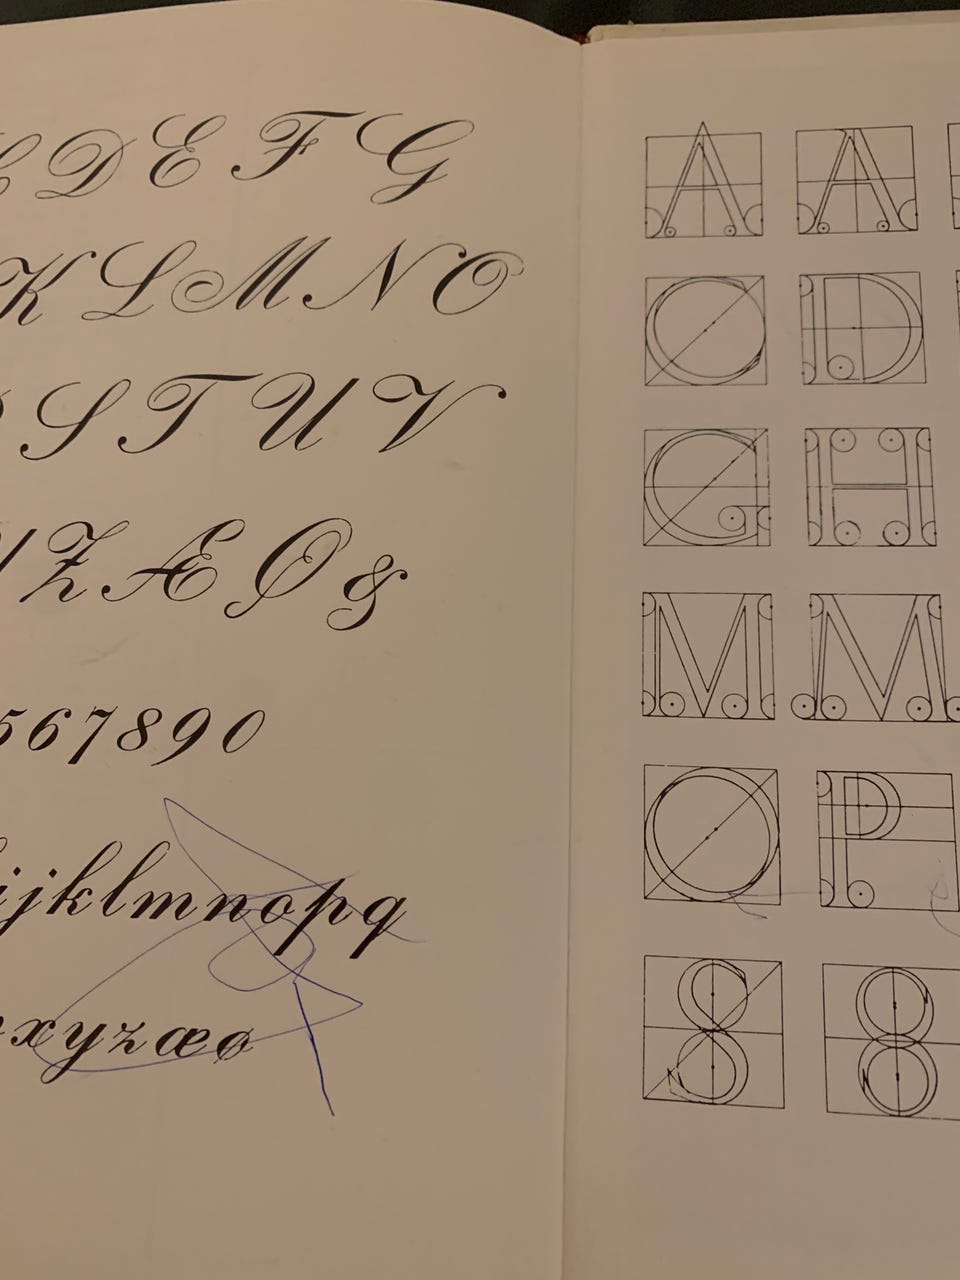 D E F G
K L M N O
S T U V
Z Æ Ø &
567890
ijklmnopq
xyzæø
A A
O D
G H
M M
O P
S 8